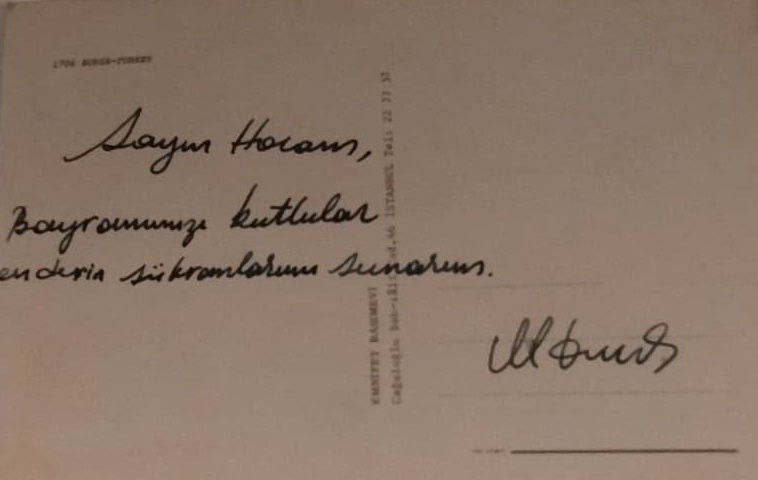 1706 BURSA-TURKEY
Sayın Hocam,
Bayramınızı kutlular
en derin şükranlarımı sunarım.
EMNİYET BASIMEVİ
Cağaloğlu İSTANBUL Tel: 22 77 57